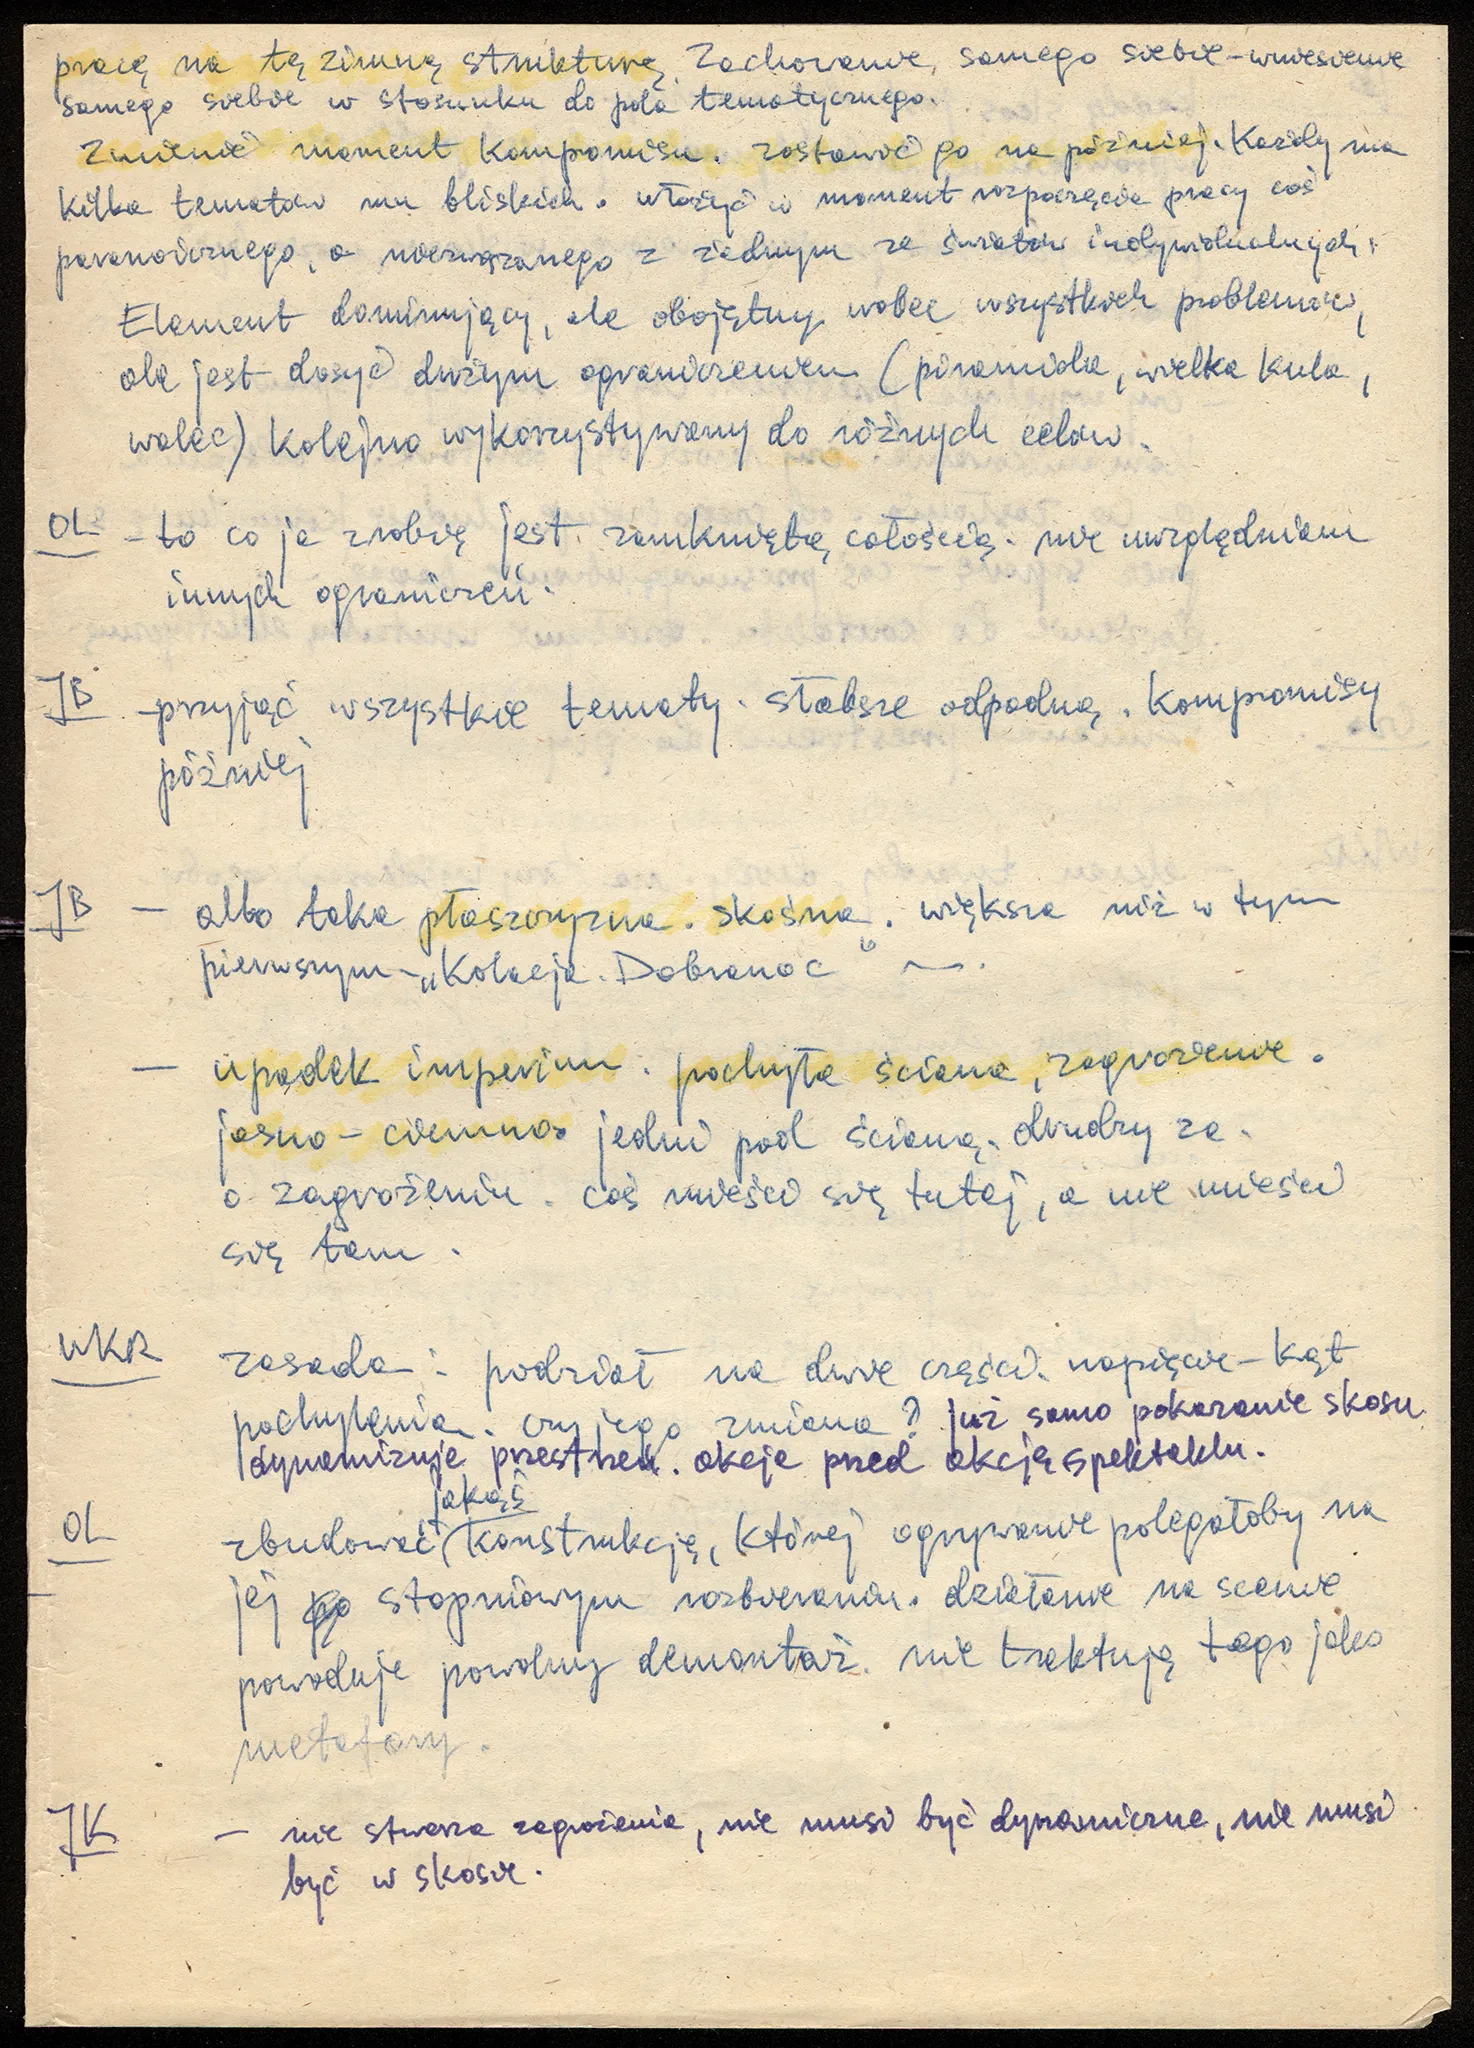 pracę na tę zimną strukturę. Zachowanie samego siebie – wniesienie
samego siebie w stosunku do pola tematycznego.
Zmienić moment kompomisu. zostawić go na później. Każdy ma
kilka tematów mu bliskich. włożyć w moment rozpoczęcia pracy coś
paranoicznego, a niezwiązanego z żadnym ze światów indywidualnych.
Element dominujący, ale obojętny wobec wszystkich problemów,
ale jest dosyć dużym ograniczeniem (piramida, wielka kula,
walec) Kolejno wykorzystywany do różnych celów.
OL – to co ja zrobię jest zamkniętą całością. nie uwzględniam
innych ograniczeń.
JB – przyjąć wszystkie tematy. słabsze odpadną. Kompromisy
później
JB – albo taka płaszczyzna. skośna. większa niż w tym
pierwszym – „Kolacja. Dobranoc"
– upadek imperium. pochyła ściana, zagrożenie.
jasno – ciemno. jedni pod ścianą. drudzy za.
o zagrożeniu. coś mieści się tutaj, a nie mieści
się tam.
WKR zasada: podział na dwie części. napięcie – kąt
pochylenia. czy jego zmiana? już samo pokazanie skosu
dynamizuje przestrzeń. akcja przed akcją spektaklu.
jakąś
OL zbudować konstrukcję, której ogrywanie polegałoby na
jej stopniowym rozbieraniu. działanie na scenie
powoduje powolny demontaż. nie traktują tego jako
metafory.
JK – nie stwarza zagrożenia, nie musi być dynamiczna, nie musi
być w skosie.